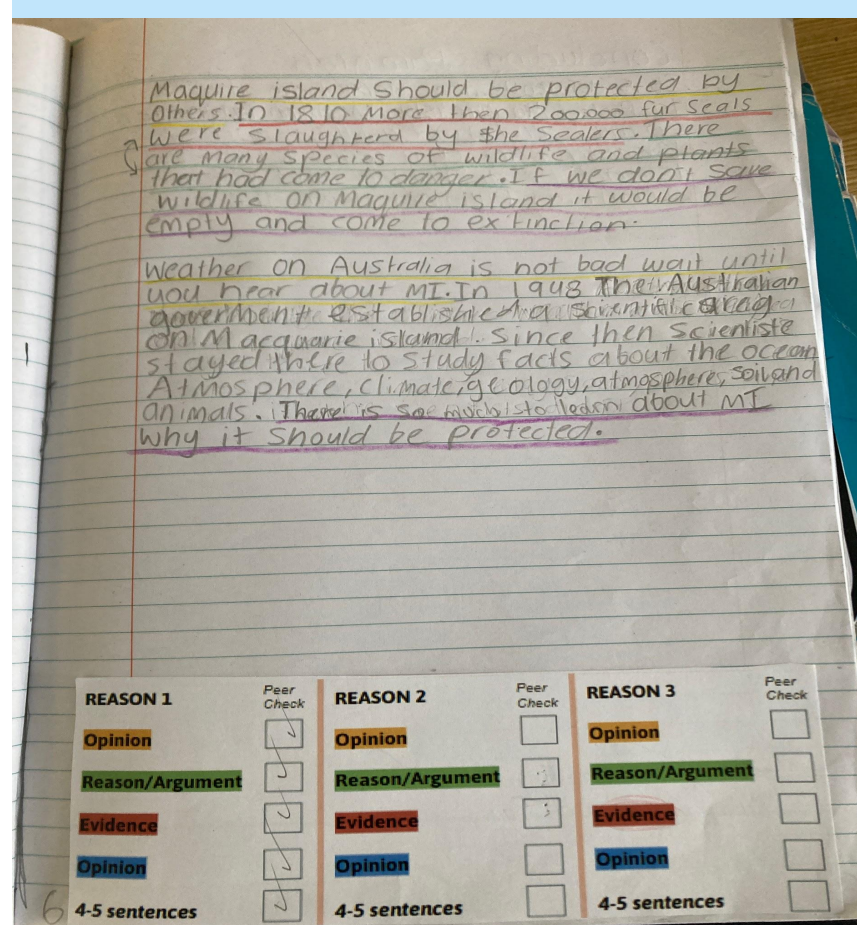 Maquire island should be protected by
Others. In 1810 More then 200,000 fur seals
were slaughterd by the Sealers. There
are many species of wildlife and plants
that had come to danger. If we don't save
wildlife on Maquire island it would be
empty and come to extinction.
Weather on Australia is not bad wait until
you hear about MI. In 1948 The Australian
goverment established a scientific
on Macquarie island. Since then scientists
stayed there to study facts about the ocean
Atmosphere, climate, geology, atmosphere, soil and
animals. There is so much to learn about MI
why it should be protected.
REASON 1 Peer Check
Opinion
Reason/Argument
Evidence
Opinion
4-5 sentences
REASON 2 Peer Check
Opinion
Reason/Argument
Evidence
Opinion
4-5 sentences
REASON 3 Peer Check
Opinion
Reason/Argument
Evidence
Opinion
4-5 sentences
6